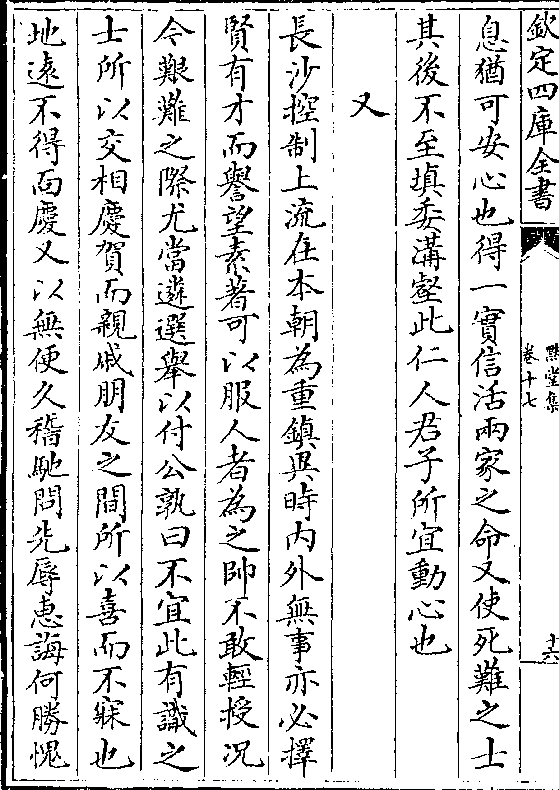 欽定四庫全書
默堂集
卷十七
十六
息猶可安心也得一實信活兩家之命又使死難之士
其後不至填委溝壑此仁人君子所宜動心也
又
長沙控制上流在本朝為重鎮異時内外無事亦必擇
賢有才而譽望素著可以服人者為之帥不敢輕授况
今艱難之際尤當遴選舉以付公孰曰不宜此有識之
士所以交相慶賀而親戚朋友之間所以喜而不寐也
地逺不得面慶又以無便久稽馳問先辱惠誨何勝愧